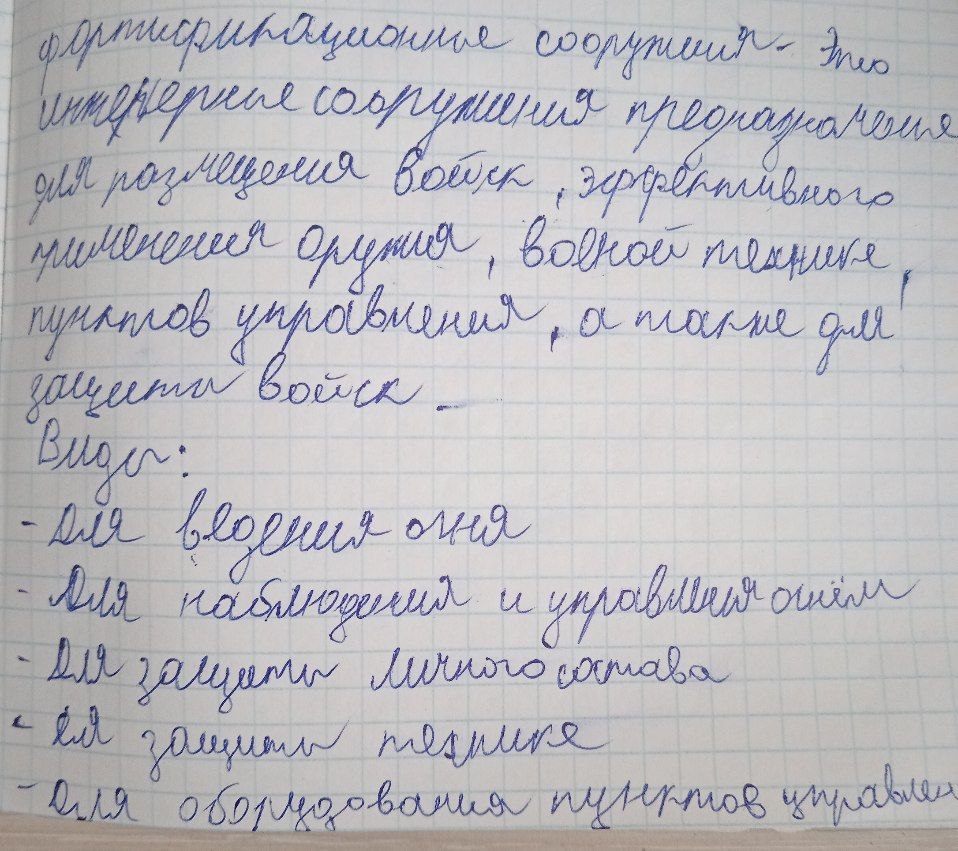 фортификационные сооружения - это
инженерные сооружения предназначение
для размещения войск, эффективного
применения оружия, военной технике,
пунктов управления, а также для
защиты войск.
Виды:
- Для ведения огня
- Для наблюдения и управления огнём
- Для защиты личного состава
- Для защиты технике
- Для оборудования пунктов управлен